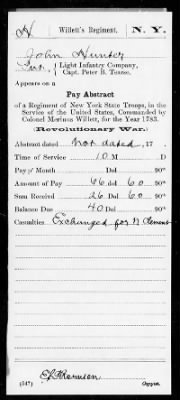 H Willett's Regiment, N. Y.
John
Light Infantry Company,
Capt. Peter B. Teause.
Appears on a
Pay Abstract
of a Regiment of New York State Troops, in the
Service of the United States, Commanded by
Colonel Marinus Willett, for the Year 1783.
(Revolutionary War.)
Abstract dated not dated, 17 .
Time of Service 10 M D
Pay ⅌ Month Dol 90ths
Amount of Pay 66 dol 60 90ths
Sum Received 26 dol 60 90ths
Balance Due 40 Dol 90ths
Casualties Exchanged for N Clemens
(547) Copyist.